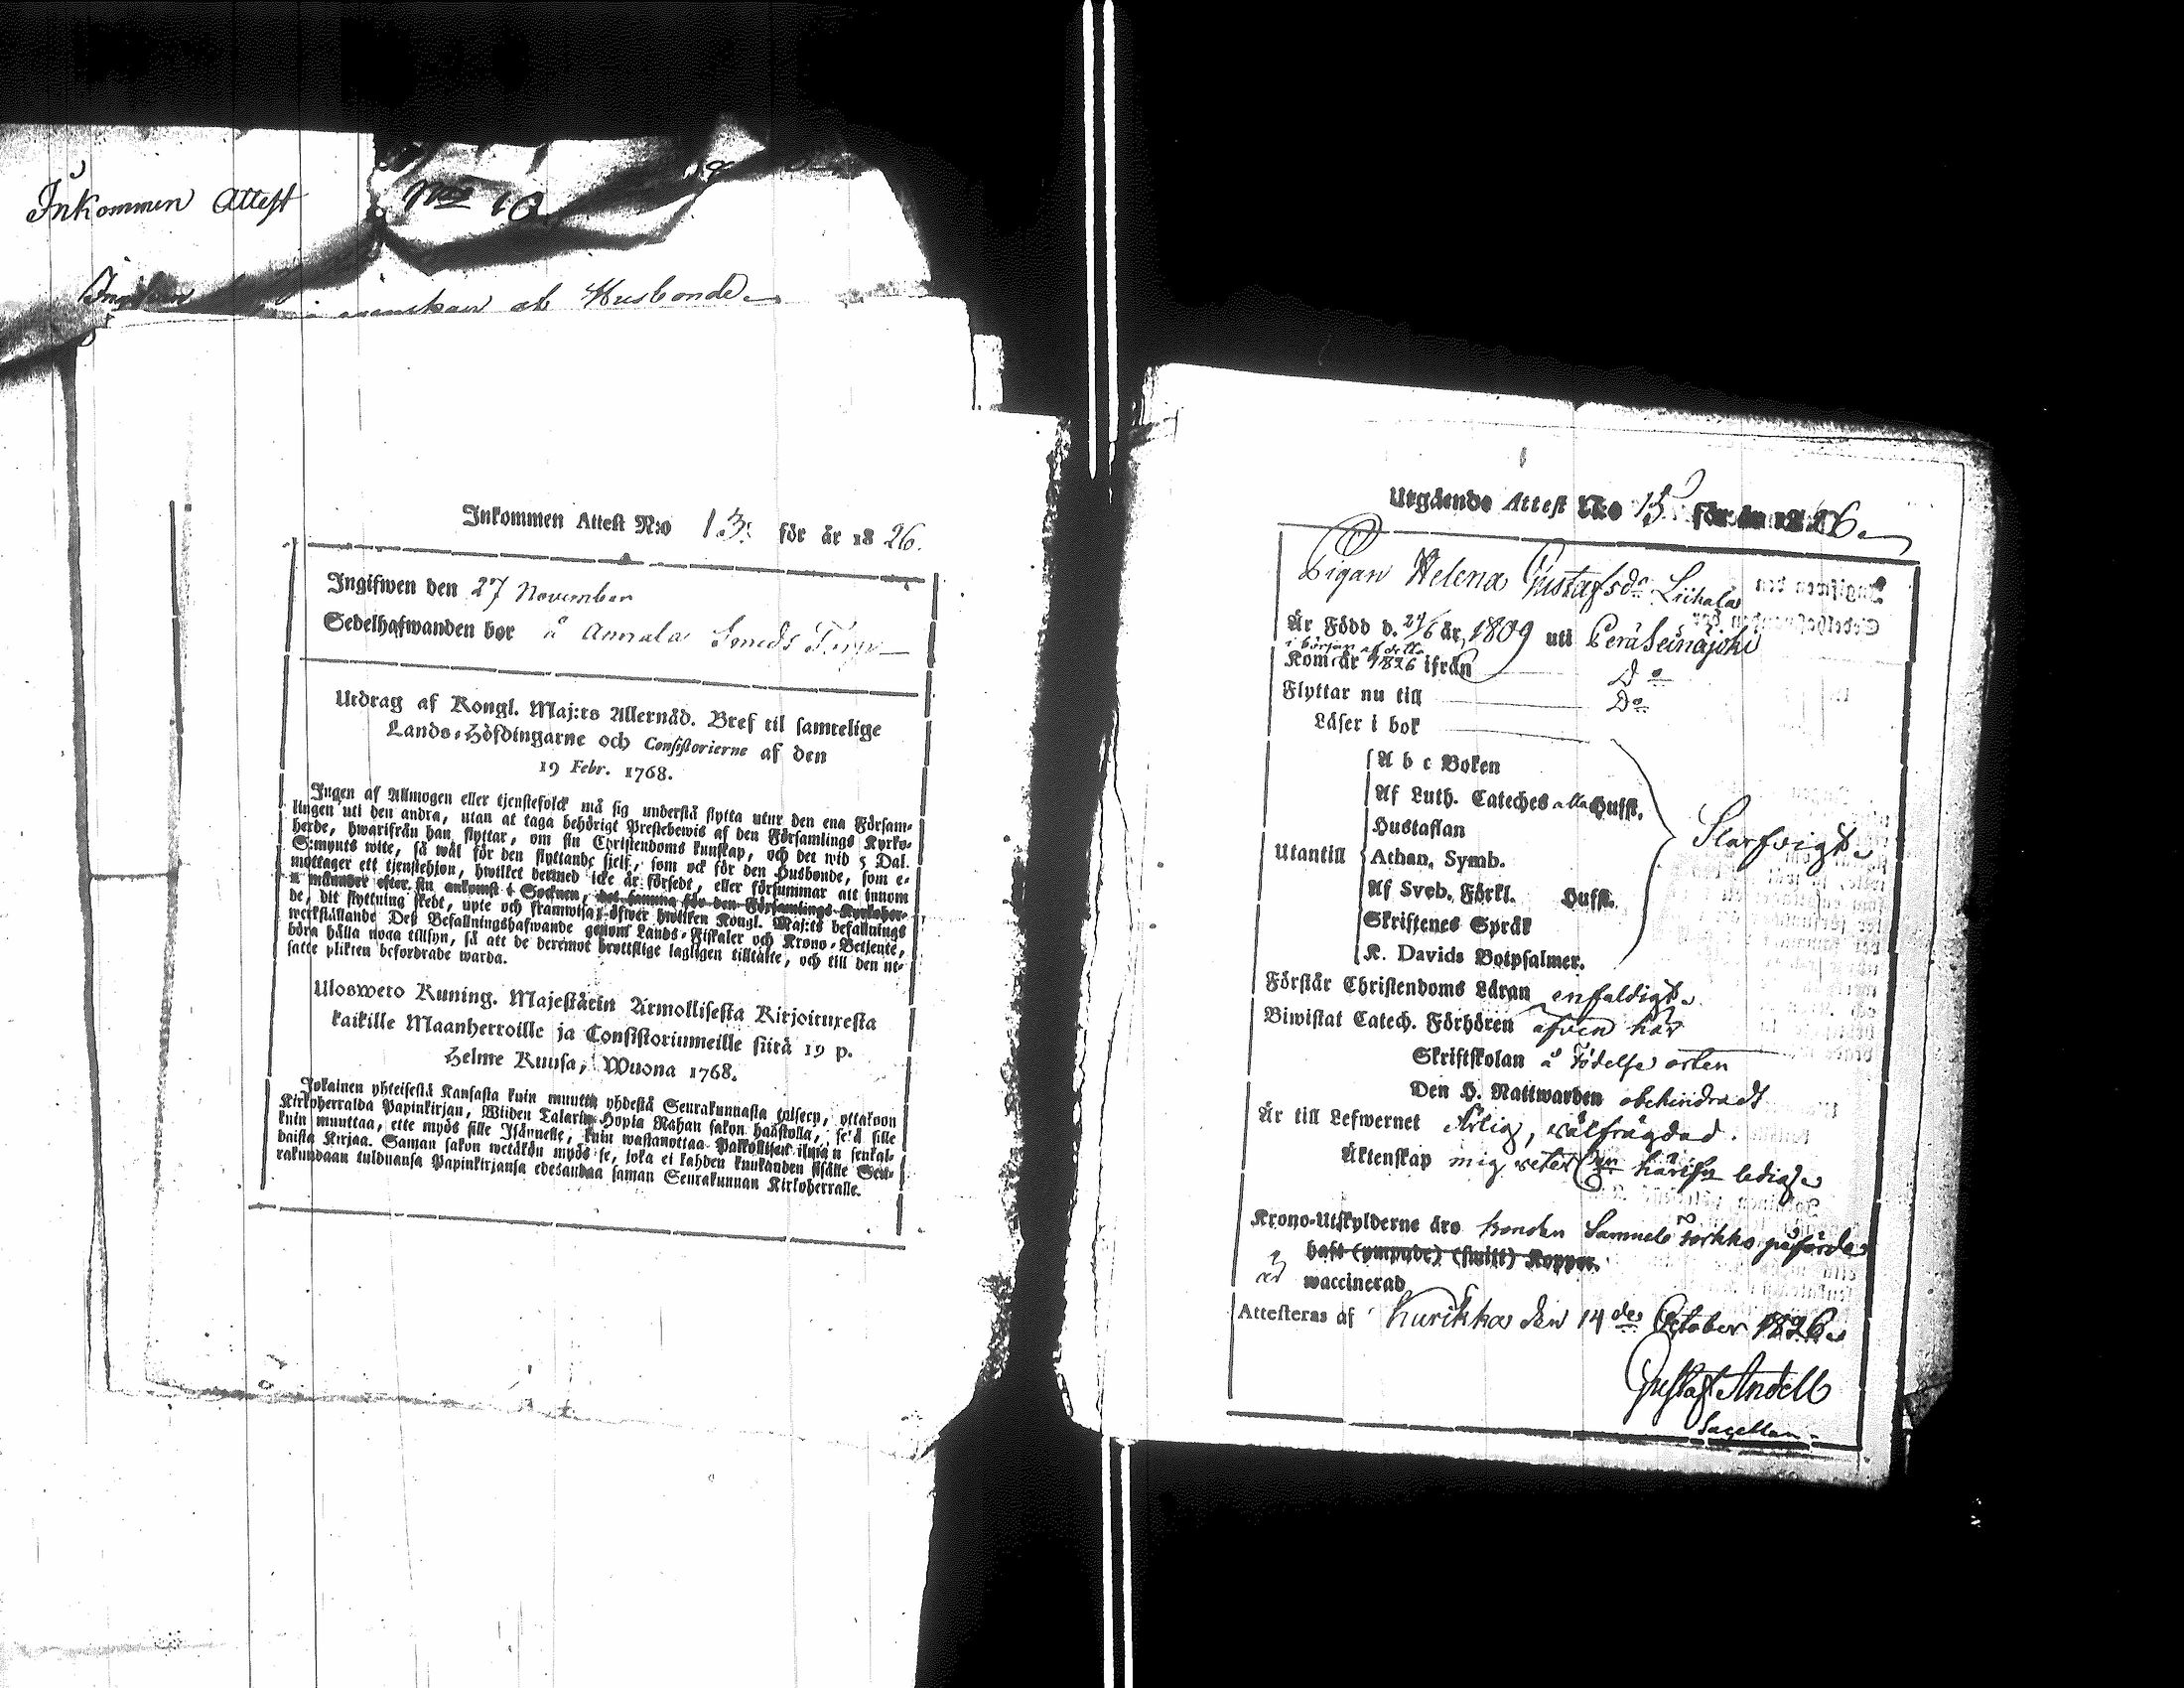 Inkommen Attest
No 10
af Husbonde
Inkommen Attest N:o 13: för år 1826.
Ingifwen den 27 November
Sedelhafwanden bor å Annala Smeds Torp
Utdrag af Kongl. Maj:ts Allernåd. Bref til samtelige
Lands-Höfdingarne och Consistorierne af den
19 Febr. 1768.
Ingen af Allmogen eller tjenstefolck må sig understå flytta utur den ena Försam-
lingen uti den andra, utan at taga behörigt Prestebewis af den Församlings Kyrko-
herde, hwarifrån han flyttar, om sin Christendoms kunskap, och det wid 5 Dal.
S:mynts wite, så wäl för den flyttande sielf, som ock för den Husbonde, som e-
mottager ett tjenstehjon, hwilket dermed icke är försedt, eller försummar att innom
2 månader efter sin ankomst i Socknen, det samma för den Församlings Kyrkoher-
de, dit flyttning skedt, upte och framwisa; öfwer hwilken Kongl. Maj:ts befallnings
werkställande Deß Befallningshafwande genom Lands-Fiskaler och Krono-Betjente,
böra hålla noga tillsyn, så att de deremot brottslige lagligen tilltalte, och till den ut-
satte plikten befordrade warda.
Uloswero Kuning. Majestätin Armollisesta Kirjoituxesta
kaikille Maanherroille ja Consistoriumeille siitä 19 p.
Helme Kuusa, Wuona 1768.
Jokainen yhteisestä Kansasta kuin muutta yhdestä Seurakunnasta toiseen, ottakoon
Kirkoherralda Papinkirjan, Wiiden Talarin Hopia Rahan sakon haastolla, sekä sille
kuin muuttaa, ette myös sille Isännelle, kuin wastanottaa Palkollisen ilman senkal-
daista Kirjaa. Saman sakon wetäkön myös se, joka ei kahden kuukauden sisälle Seu-
rakundaan tulduansa Papinkirjansa edesandaa saman Seurakunnan Kirkoherralle.
Utgående Attest No 15 för år 1826
Pigan Helena Gustafsdr Liikala
Är Född d. 24/6 år 1809 uti Peräseinäjoki
i början af detta
Kom år 1826 ifrån Do
Flyttar nu till Do
Läser i bok
A b c Boken
Af Luth. Cateches alla Hufst.
Hustaflan
Utantill Athan. Symb.
Af Sveb. Förkl. Hufst.
Skriftenes Språk
K. Davids Botpsalmer.
Slarfvigt
Förstår Christendoms Läran enfaldigt
Biwistat Catech. Förhören äfven här
Skriftskolan å Födelse orten
Den H. Nattwarden obehindradt
Är till Lefwernet Ärlig, välfrägdad.
Äktenskap mig veterl:n härifrn ledig
Krono-Utskylderne äro bonden Samuels Torkko påförde
haft (ympade) (smitt) Koppor.
är waccinerad
Attesteras af Kurikka den 14de October 1826
Gustaf Andell
Sacellan.